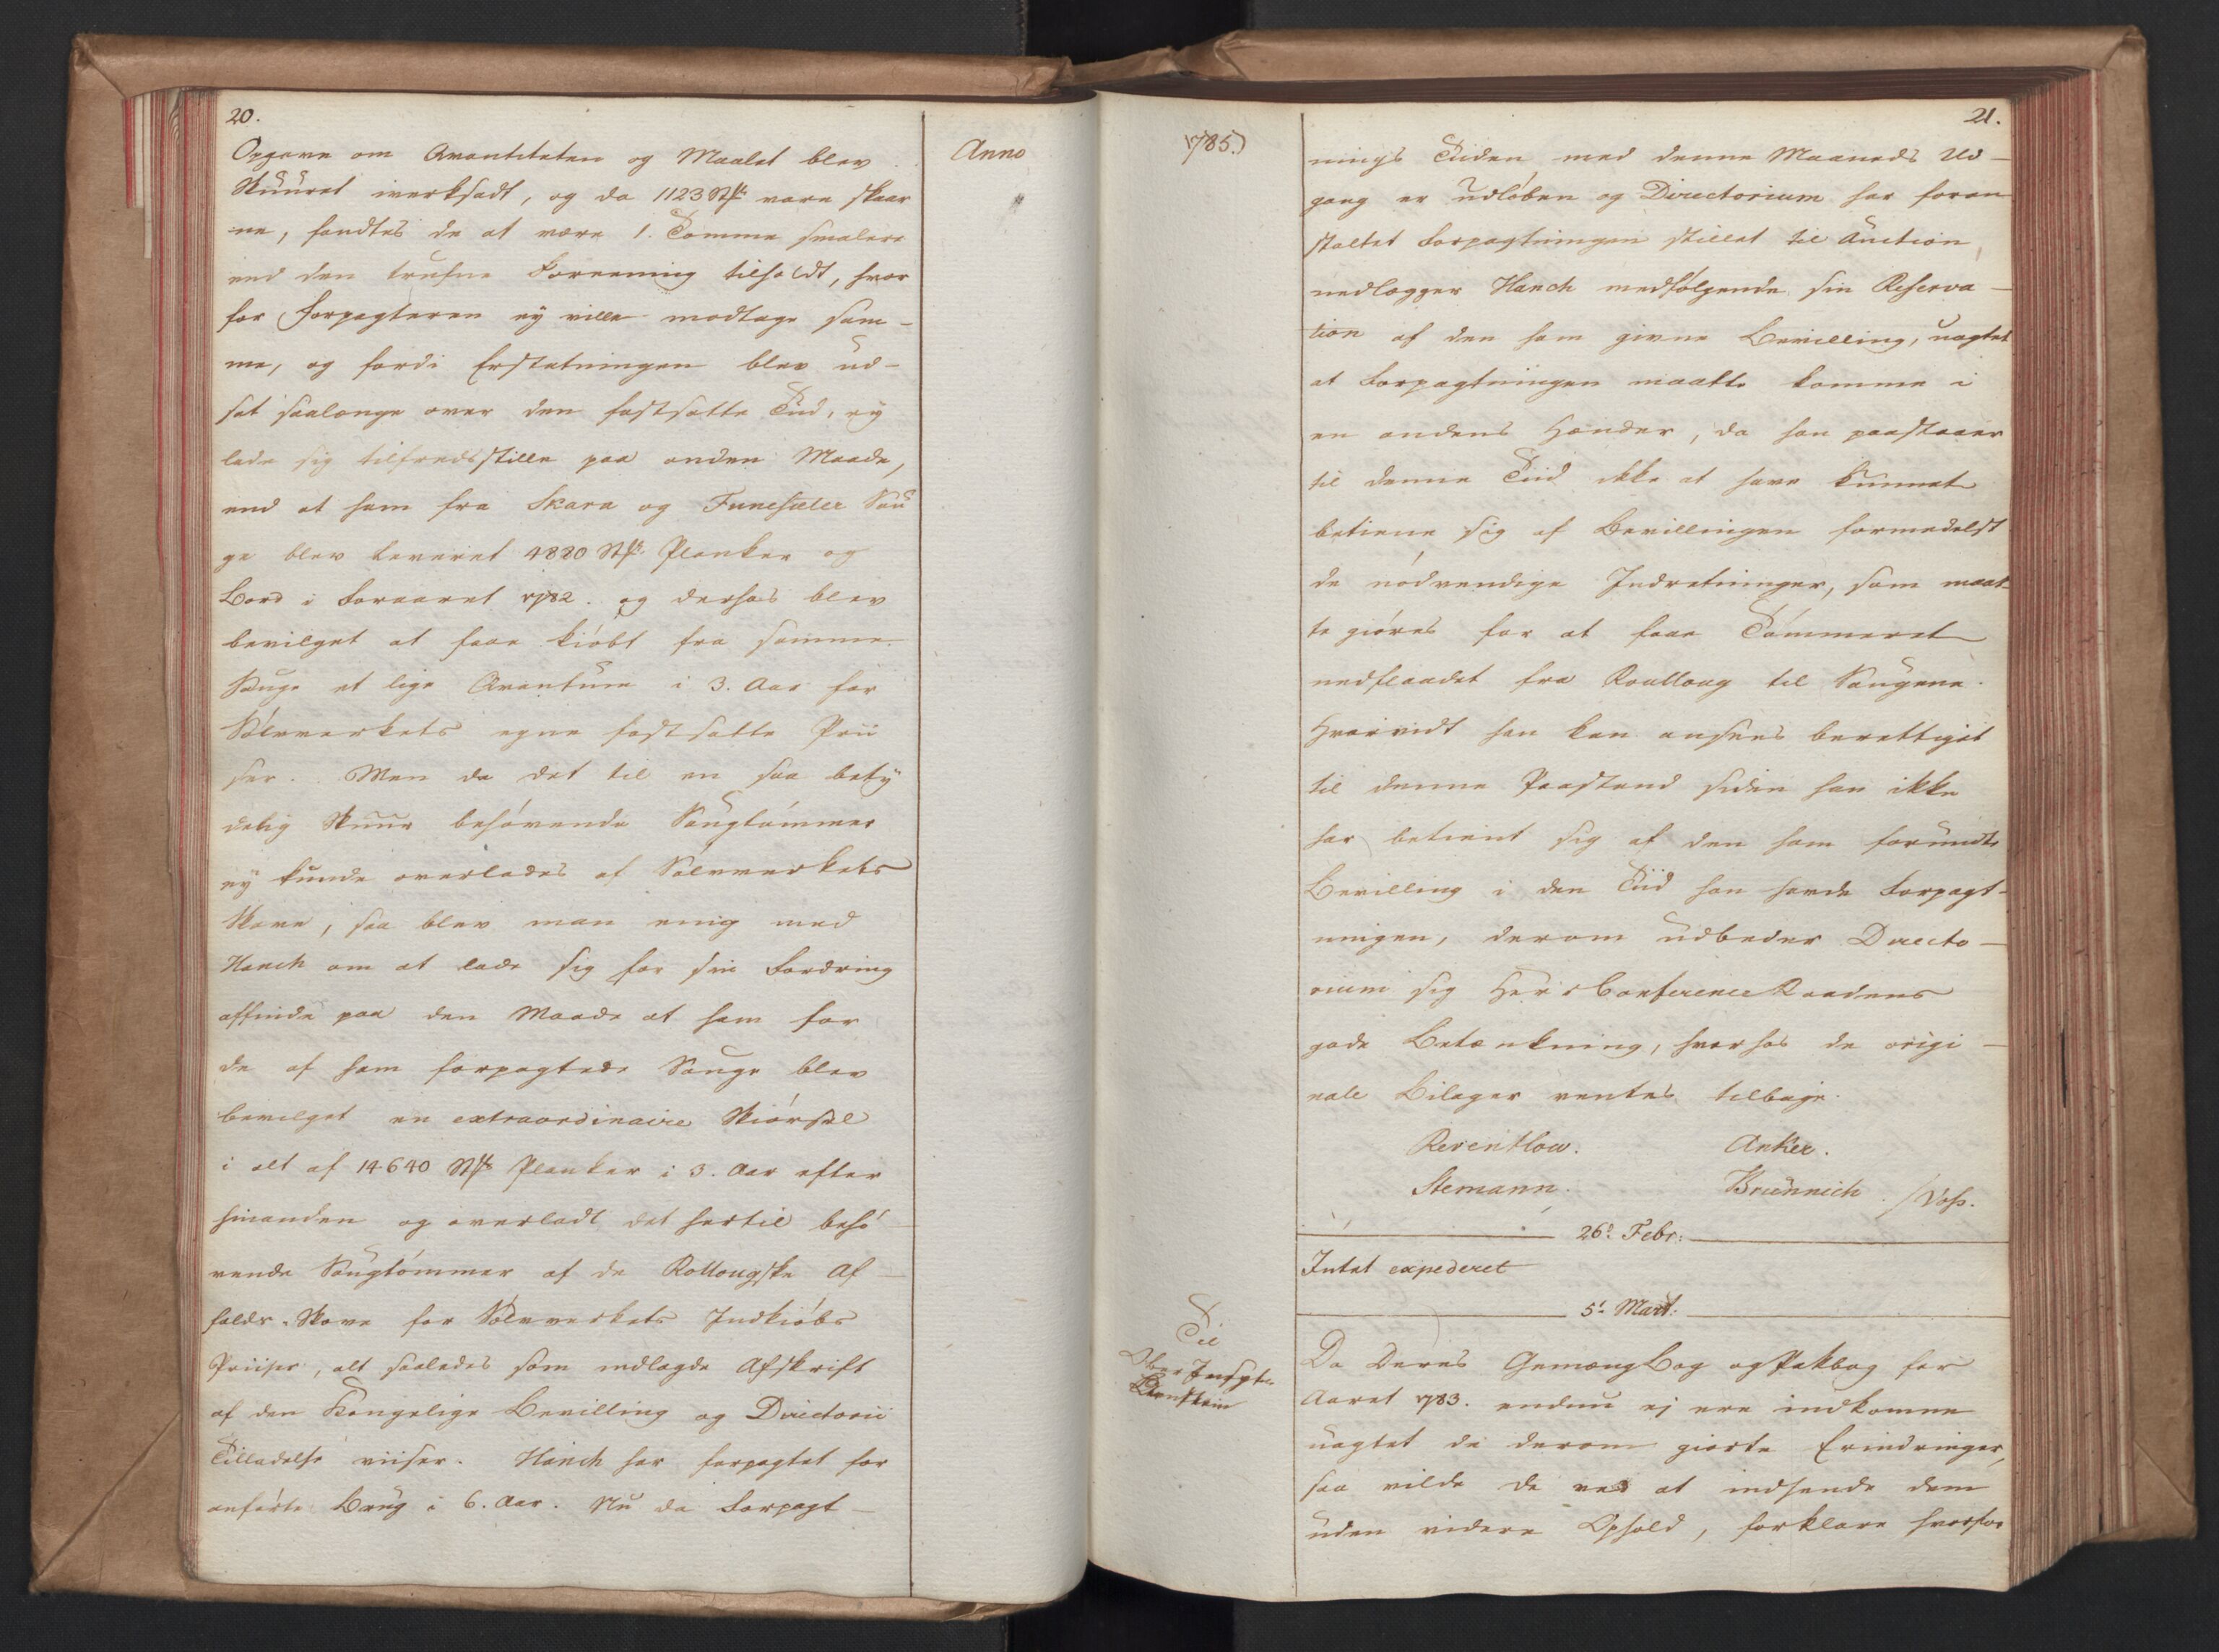 20.
Opgave om Qvantiteten og Maalet blev
Skuuret iverksadt, og da 1123 St. vare skaar
ne, fandtes de at være 1. Tomme smalere
end den trufne Foreening tilholdt, hvor
for Forpagteren ey ville modtage sam-
me, og fordi Erstatningen blev ud-
sat saalænge over den fastsatte Tiid, ey
lade sig tilfredsstille paa anden Maade,
end at ham fra Skara og Funesæter Sau
ge blev leveret 4880 St. Planker og
Bord i Foraaret 1782. og derhos blev
bevilget at faae kiøbt fra samme
Sauge et lige Qvantum i 3. Aar for
Sølvverkets egne fastsatte Prii
ser. Men da det til en saa bety
delig Skuur behøvende Saugtømmer
ey kunde overlades af Sølvverkets
Skove, saa blev man enig med
Hanch om at lade sig for sin Fordring
affinde paa den Maade at ham for
de af ham forpagtede Sauge blev
bevilget en extraordinaire Skiørsel
i alt af 14640 St. Planker i 3. Aar efter
hinanden og overladt det hertil behø
vende Saugtømmer af de Rollougske Af-
falds-Skove for Sølvverkets Indkiøbs
Priiser, alt saaledes som indlagde Afskrift
af den Kongelige Bevilling og Directorii
Tilladelse viiser. Hanch har forpagtet for
anførte Brug i 6. Aar. Nu da Forpagt-
Anno
1785.)
21.
nings Tiiden med denne Maaneds Ud-
gang er udløben og Directorium har foran
staltet Forpagtningen stillet til Auction,
nedlægger Hanch medfølgende sin Reserva-
tion af den ham givne Bevilling, uagtet
at Forpagtningen maatte komme i
en andens Hænder, da han paastaaer
til denne Tiid ikke at have kunnet
betiene sig af Bevillingen formedelst
de nødvendige Indretninger, som maat-
te giøres for at faae Tømmeret
nedflaadet fra Roulloug til Saugene.
Hvorvidt han kan ansees berettiget
til denne Paastand siden han ikke
har betient sig af den ham forundte
Bevilling i den Tiid han havde Forpagt-
ningen, derom udbeder Directo-
rium sig Herr ConferenceRaadens
gode Betænkning, hvorhos de origi-
nale Bilager ventes tilbage.
Reventlow. Anker.
Stemann. Brünnich. / Voss.
26de Febr:
Intet expederet
5te Mart:
Til
Ober Inspt.
Da Deres GemængBog og Pukbog for
Aaret 1783. endnu ej ere indkomne
uagtet de derom giorte Erindringer,
saa vilde De ved at indsende dem
uden videre Ophold, forklare hvorfor